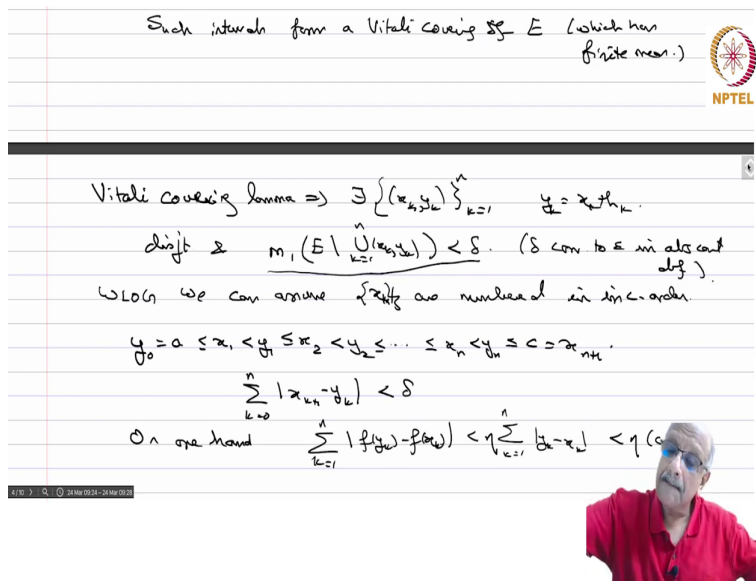 Such intervals form a Vitali covering of E (which has
finite meas.)
NPTEL
Vitali covering lemma ⇒ ∃ {(x_k, y_k)}_{k=1}^n y_k = x_k + h_k.
disjt & m_1(E \ ⋃_{k=1}^n (x_k, y_k)) < δ. (δ corr to ε in abs cont
def).
WLOG we can assume {x_k} are numbered in inc. order.
y_0 = a ≤ x_1 < y_1 ≤ x_2 < y_2 ≤ ⋯ ≤ x_n < y_n ≤ c = x_{n+1}.
∑_{k=0}^n |x_{k+1} - y_k| < δ
On one hand ∑_{k=1}^n |f(y_k) - f(x_k)| < η ∑_{k=1}^n |y_k - x_k| < η (c
4 / 10 24 Mar 09:24 – 24 Mar 09:28